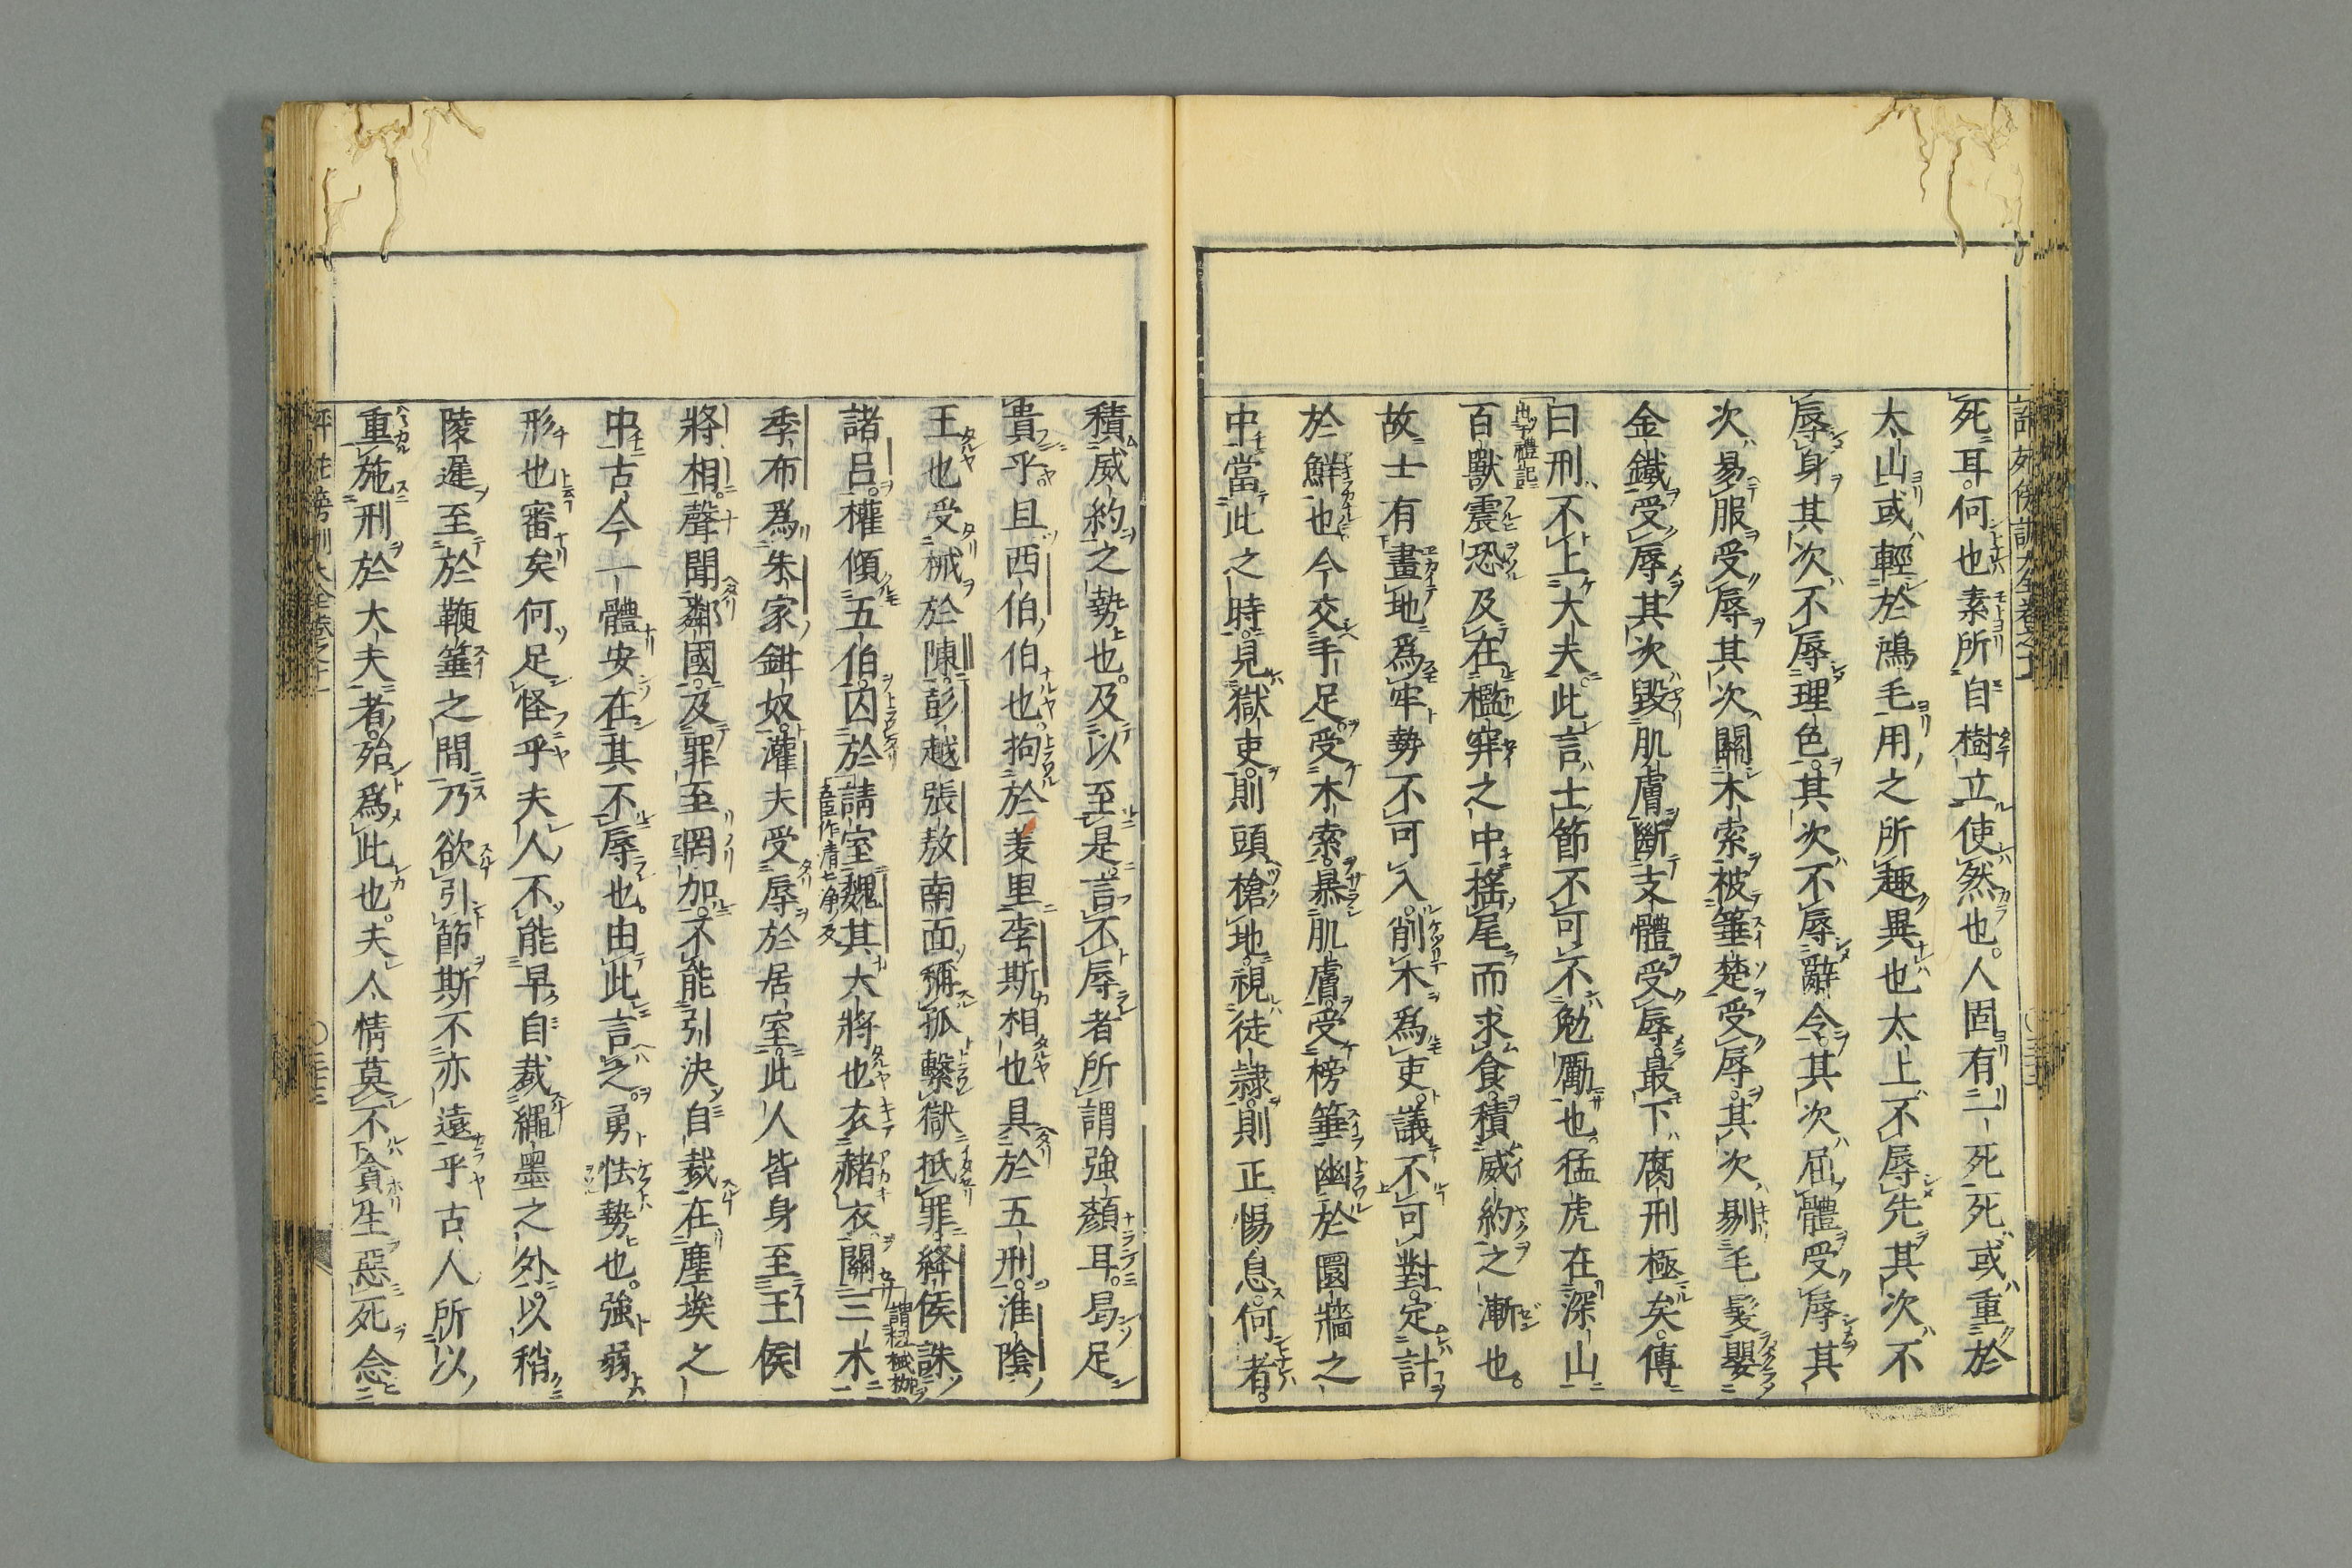 死耳。何也素所自樹立使然也。人固有一死死或重於
太山或輕於鴻毛用之所趣異也太上不辱先其次不
辱身其次不辱理色。其次不辱辭令。其次屈體受辱其
次易服受辱其次關木索被箠楚受辱。其次剔毛髮嬰
金鐵受辱其次毀肌膚斷支體受辱。最下腐刑極矣。傳
曰刑不上大夫。此言士節不可不勉勵也。猛虎在深山
百獸震恐及在檻穽之中搖尾而求食。積威約之漸也。
故士有畫地為牢勢不可入。削木為吏。議不可對。定計
於鮮也今交手足受木索。暴肌膚受榜箠幽於圜牆之
中當此之時。見獄吏。則頭槍地。視徒隸。則正惕息。何者。
積威約之勢也。及以至是。言不辱者所謂強顏耳。曷足
貴乎且西伯伯也拘於羑里李斯相也具於五刑。淮陰
王也受械於陳。彭越張敖南面稱孤繫獄抵罪絳侯誅
諸呂。權傾五伯。囚於請室魏其大將也衣赭衣關三木
季布為朱家鉗奴。灌夫受辱於居室。此人皆身至王侯
將相聲聞鄰國。及罪至罔加。不能引決自裁在塵埃之
中古今一體安在其不辱也。由此言之。勇怯勢也。強弱
形也審矣何足怪乎夫人不能早自裁繩墨之外。以稍
陵遲至於鞭箠之間乃欲引節斯不亦遠乎古人所以
重施刑於大夫者。殆為此也。夫人情莫不貪生惡死念